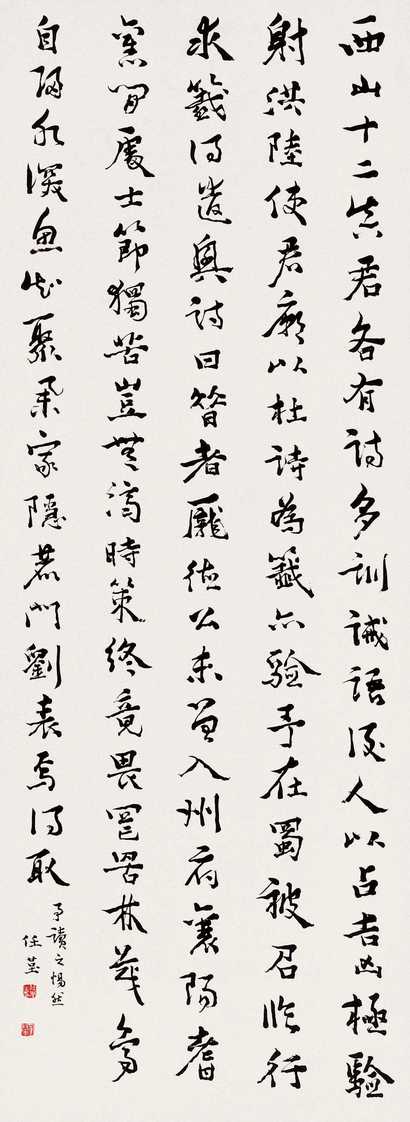 西山十二真君各有詩多訓誡語後人以占吉凶極驗
射洪陸使君廟以杜詩為籤亦驗予在蜀被召臨行
求籤得遣興詩曰昔者龐德公未曾入州府襄陽耆
舊間處士節獨苦豈無濟時策終竟畏羅罟林茂鳥
自歸水深魚知聚舉家隱鹿門劉表焉得取
予讀之惕然
任堇